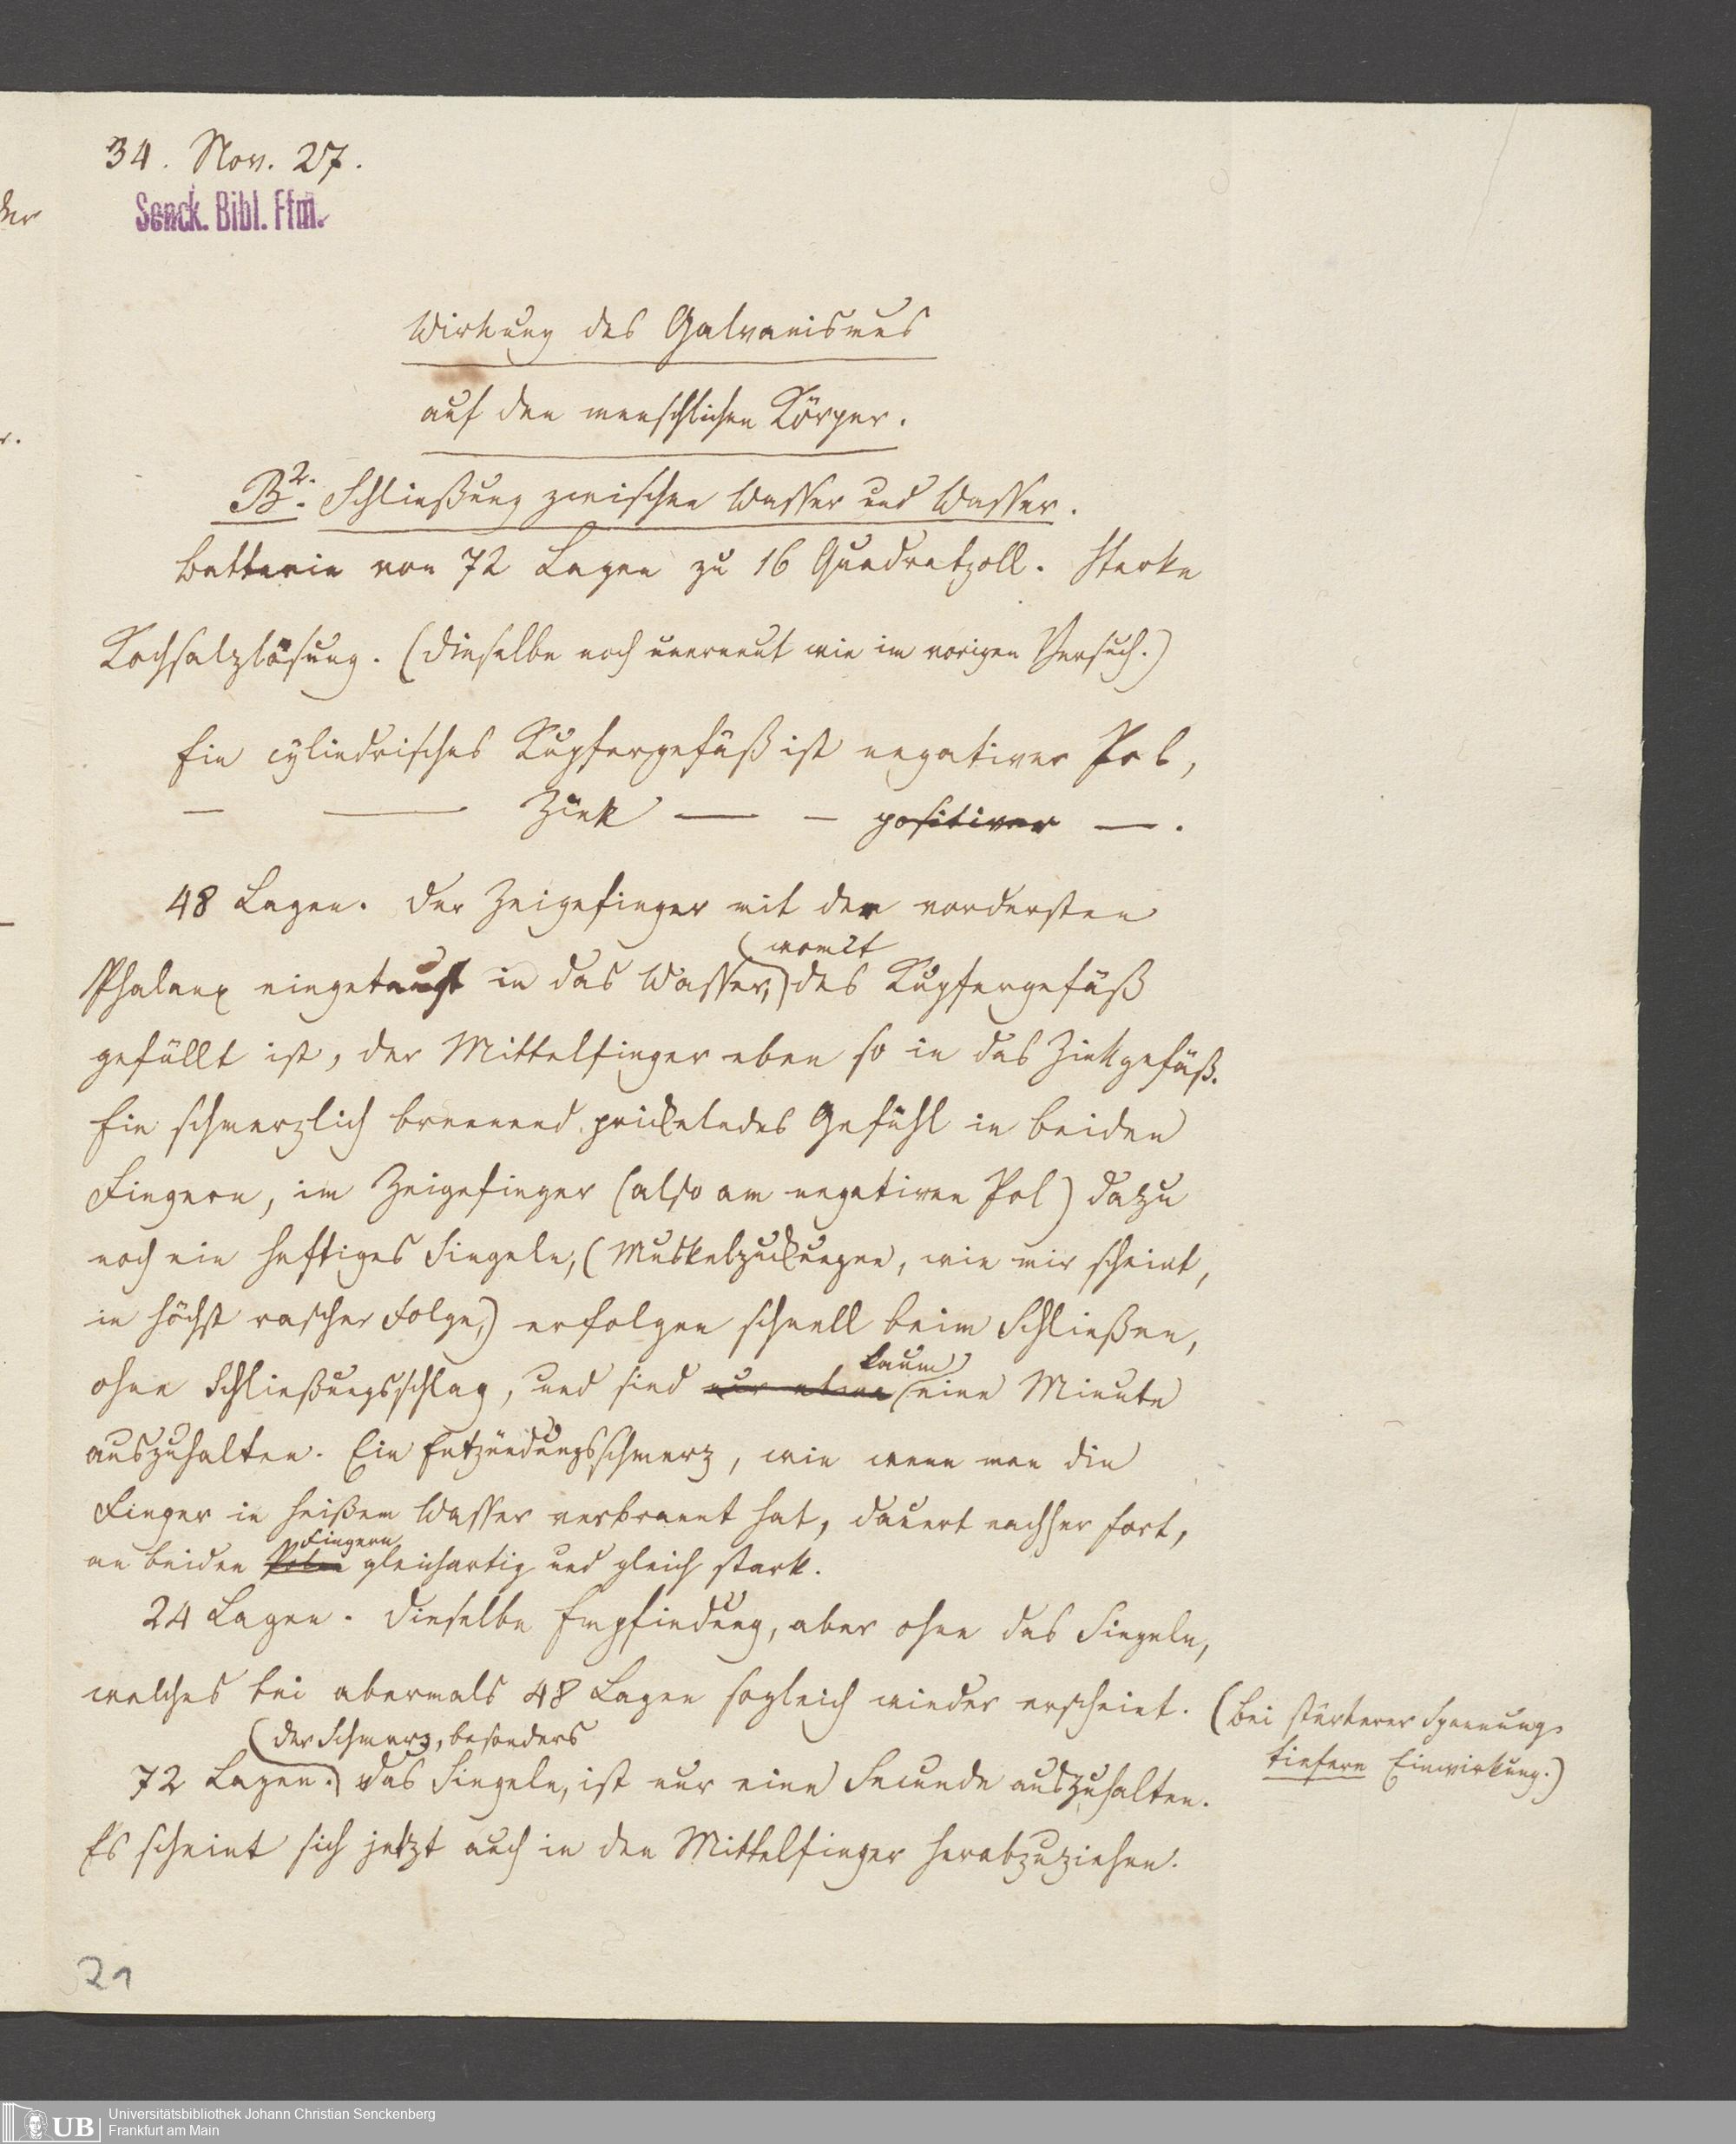 34. Nov. 27.
Senck. Bibl. Ffm.
Wirkung des Galvanismus
auf den menschlichen Körper.
B². Schließung zwischen Wasser und Wasser.
Batterie von 72 Lagen zu 16 Quadratzoll. Starke
Kochsalzlösung. (Dieselbe noch unerneut wie im vorigen Versuch.)
Ein cylindrisches Kupfergefäß ist negativer Pol,
— — Zink — — positiver —.
48 Lagen. Der Zeigefinger mit der vordersten
womit
Phalanx eingetaucht in das Wasser, das Kupfergefäß
gefüllt ist, der Mittelfinger eben so in das Zinkgefäß.
Ein schmerzlich brennend prickelndes Gefühl in beiden
Fingern, im Zeigefinger (also am negativen Pol) dazu
noch ein heftiges Singeln, (Muskelzuckungen, wie mir scheint,
in höchst rascher Folge,) erfolgen schnell beim Schließen,
kaum
ohne Schließungsschlag, und sind nur eben eine Minute
auszuhalten. Ein Entzündungsschmerz, wie wenn man die
Finger in heißem Wasser verbrannt hat, dauert nachher fort,
Fingern
an beiden Polen gleichartig und gleich stark.
24 Lagen. Dieselbe Empfindung, aber ohne das Singeln,
welches bei abermals 48 Lagen sogleich wieder erscheint. (Bei stärkerer Spannung
tiefere Einwirkung.)
(der Schmerz, besonders
72 Lagen. das Singeln, ist nur eine Secunde auszuhalten.
Es scheint sich jetzt auch in den Mittelfinger herabzuziehen.
21
UB
Universitätsbibliothek Johann Christian Senckenberg
Frankfurt am Main